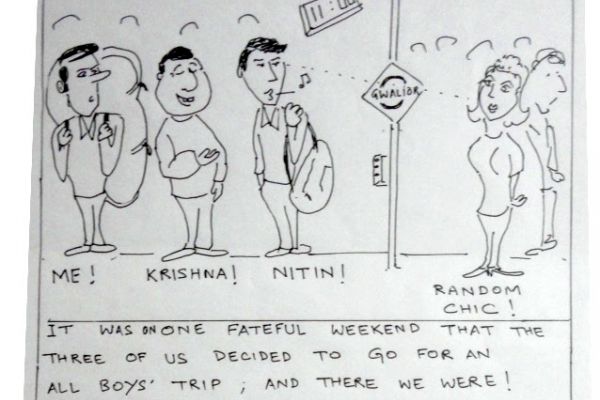 GWALIOR
ME! KRISHNA! NITIN!
RANDOM
CHIC!
IT WAS ON ONE FATEFUL WEEKEND THAT THE
THREE OF US DECIDED TO GO FOR AN
ALL BOYS' TRIP; AND THERE WE WERE!